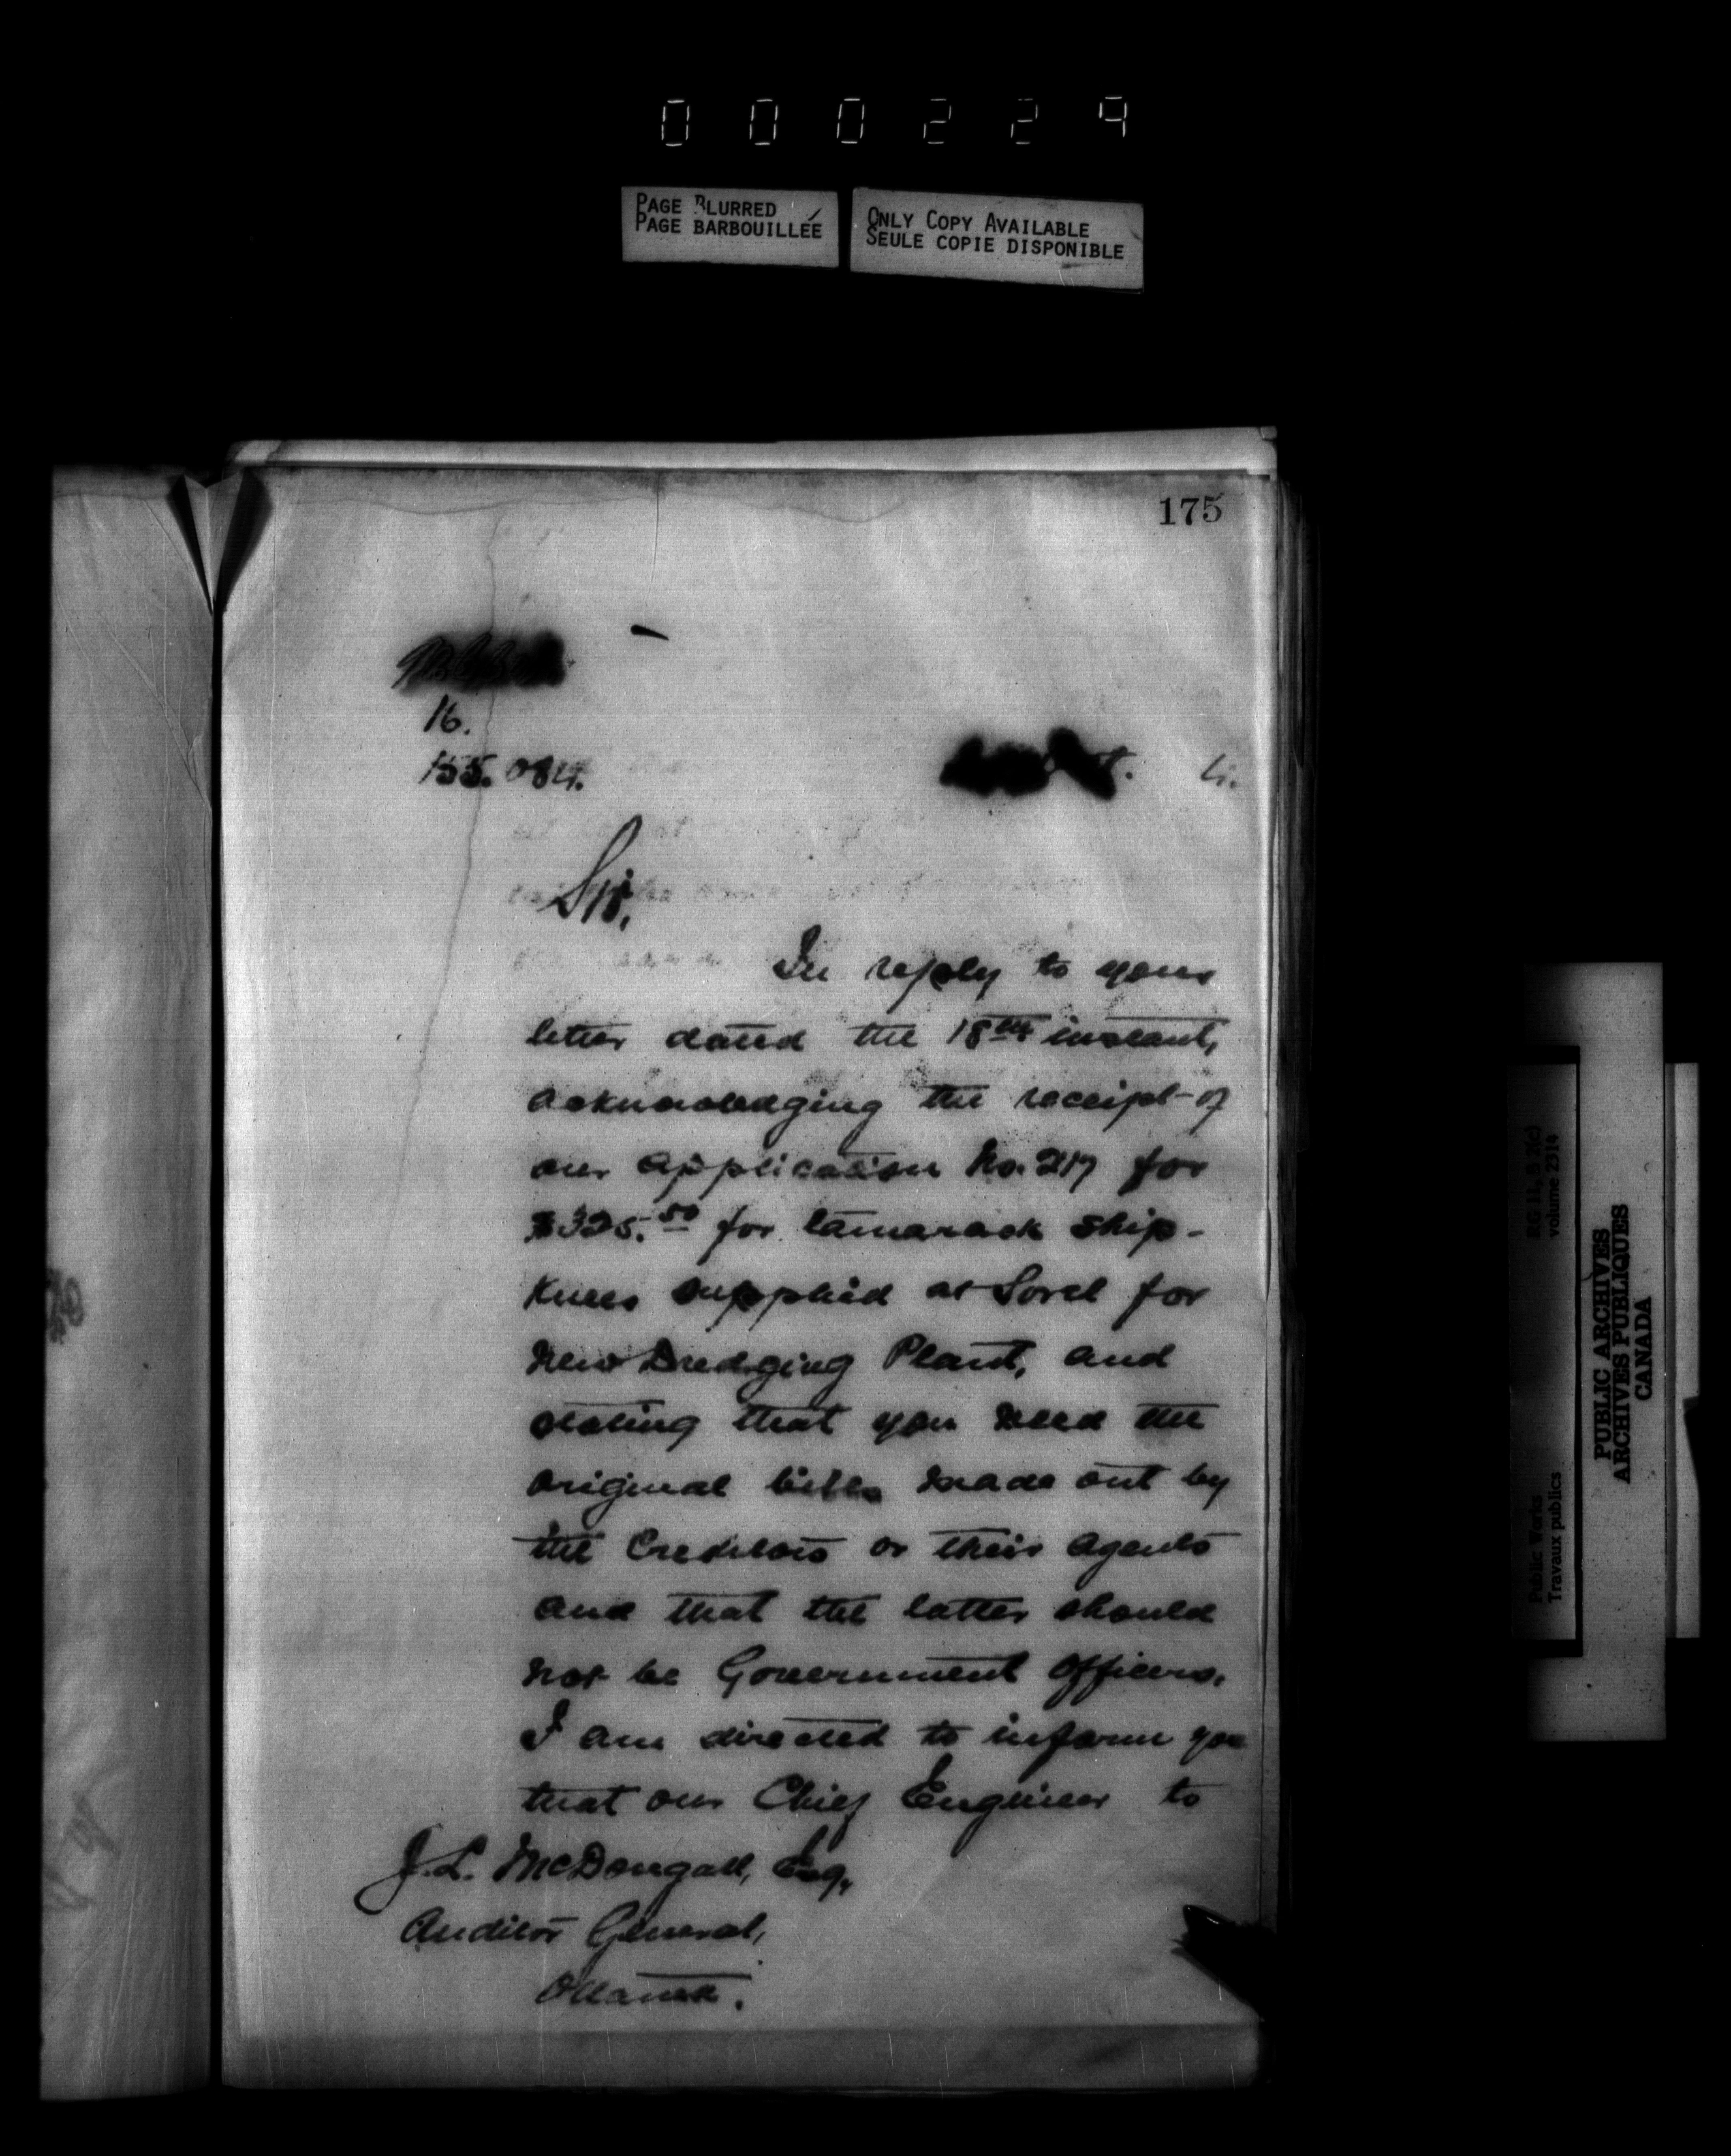 000229
PAGE BLURRED
PAGE BARBOUILLÉE
ONLY COPY AVAILABLE
SEULE COPIE DISPONIBLE
175
16.
155.084.
4.
Sir,
In reply to your
letter dated the 18th instant,
acknowledging the receipt of
our application No. 217 for
$325.50 for tamarack ship-
knees supplied at Sorel for
New Dredging Plant, and
stating that you need the
original bills made out by
the Creditors or their agents
and that the latter should
not be Government Officers,
I am directed to inform you
that our Chief Engineer to
J. L. McDougall, Esq,
Auditor General,
Ottawa.
RG 11, B 2(c)
volume 2314
Public Works
Travaux publics
PUBLIC ARCHIVES
ARCHIVES PUBLIQUES
CANADA